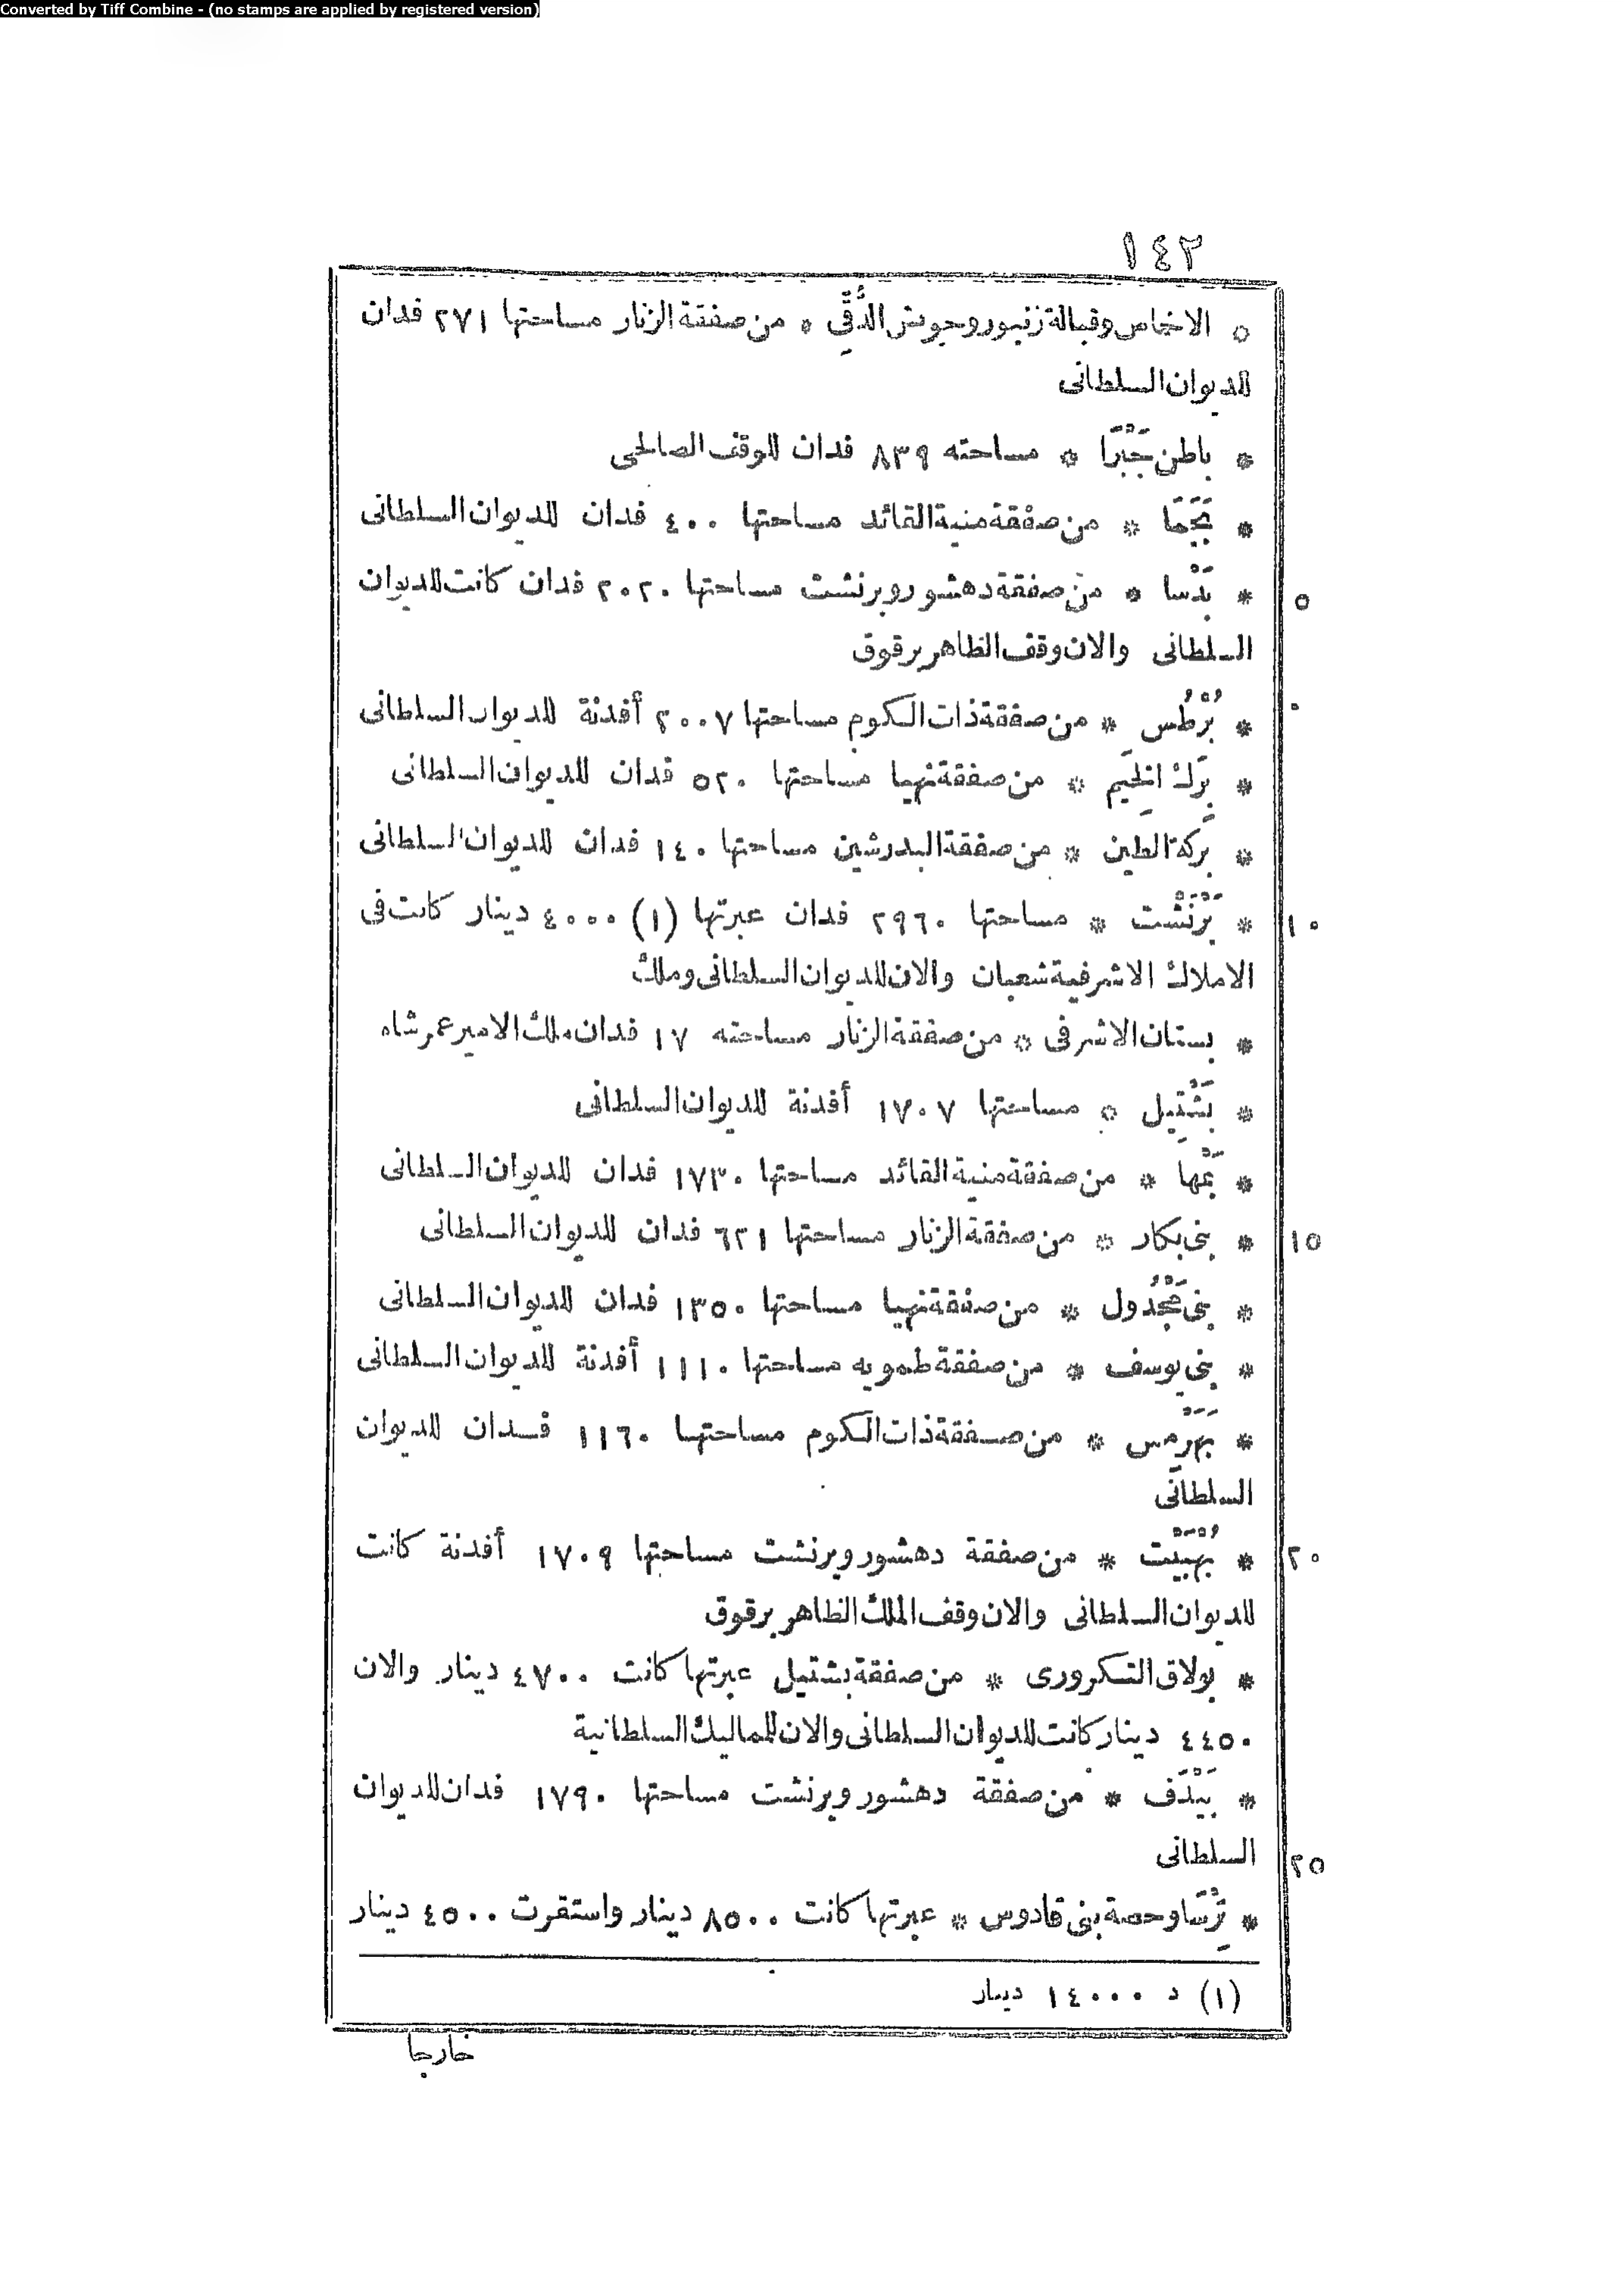 Converted by Tiff Combine - (no stamps are applied by registered version)
١٤٢
* الاخماس وقبالة زنبور وحوش الدُّقِّي * من صفقة الزنار مساحتها ٢٧١ فدان
للديوان السلطانى
* باطن جَبْرَا * مساحته ٨٣٩ فدان للوقف الصالحى
* من صفقة منية القائد مساحتها ٤٠٠ فدان للديوان السلطانى
* بَدْسا * من صفقة دهشور وبرنشت مساحتها ٢٠٢٠ فدان كانت للديوان
٥
السلطانى والان وقف الظاهر برقوق
* بُرْطُس * من صفقة ذات الكوم مساحتها ٢٠٠٧ أفدنة للديوان السلطانى
* بِرَك الخِيَم * من صفقة نهيا مساحتها ٥٢٠ فدان للديوان السلطانى
* بركة الطين * من صفقة البدرشين مساحتها ١٤٠ فدان للديوان السلطانى
* بَرْنَشْت * مساحتها ٢٩٦٠ فدان عبرتها (١) ٤٠٠٠ دينار كانت فى
١٠
الاملاك الاشرفية شعبان والان للديوان السلطانى وملك
* بستان الاشرفى * من صفقة الزنار مساحته ١٧ فدان ملك الامير عمر شاه
* بَشْتِيل * مساحتها ١٧٠٧ أفدنة للديوان السلطانى
* بَمْها * من صفقة منية القائد مساحتها ١٧٣٠ فدان للديوان السلطانى
* بنى بكار * من صفقة الزنار مساحتها ٦٢١ فدان للديوان السلطانى
١٥
* بنى مَجْدُول * من صفقة نهيا مساحتها ١٣٥٠ فدان للديوان السلطانى
* بنى يوسف * من صفقة طمويه مساحتها ١١١٠ أفدنة للديوان السلطانى
* بَهَرْمَس * من صفقة ذات الكوم مساحتها ١١٦٠ فدان للديوان
السلطانى
* بُهْبَيْت * من صفقة دهشور وبرنشت مساحتها ١٧٠٩ أفدنة كانت
٢٠
للديوان السلطانى والان وقف الملك الظاهر برقوق
* بولاق التكرورى * من صفقة بشتيل عبرتها كانت ٤٧٠٠ دينار والان
٤٤٥٠ دينار كانت للديوان السلطانى والان للمماليك السلطانية
* بَيْدَف * من صفقة دهشور وبرنشت مساحتها ١٧٩٠ فدان للديوان
السلطانى
٢٥
* تِرْسَا وحصة بنى قادوس * عبرتها كانت ٨٥٠٠ دينار واستقرت ٤٥٠٠ دينار
(١) د ١٤٠٠٠ دينار
خارجا